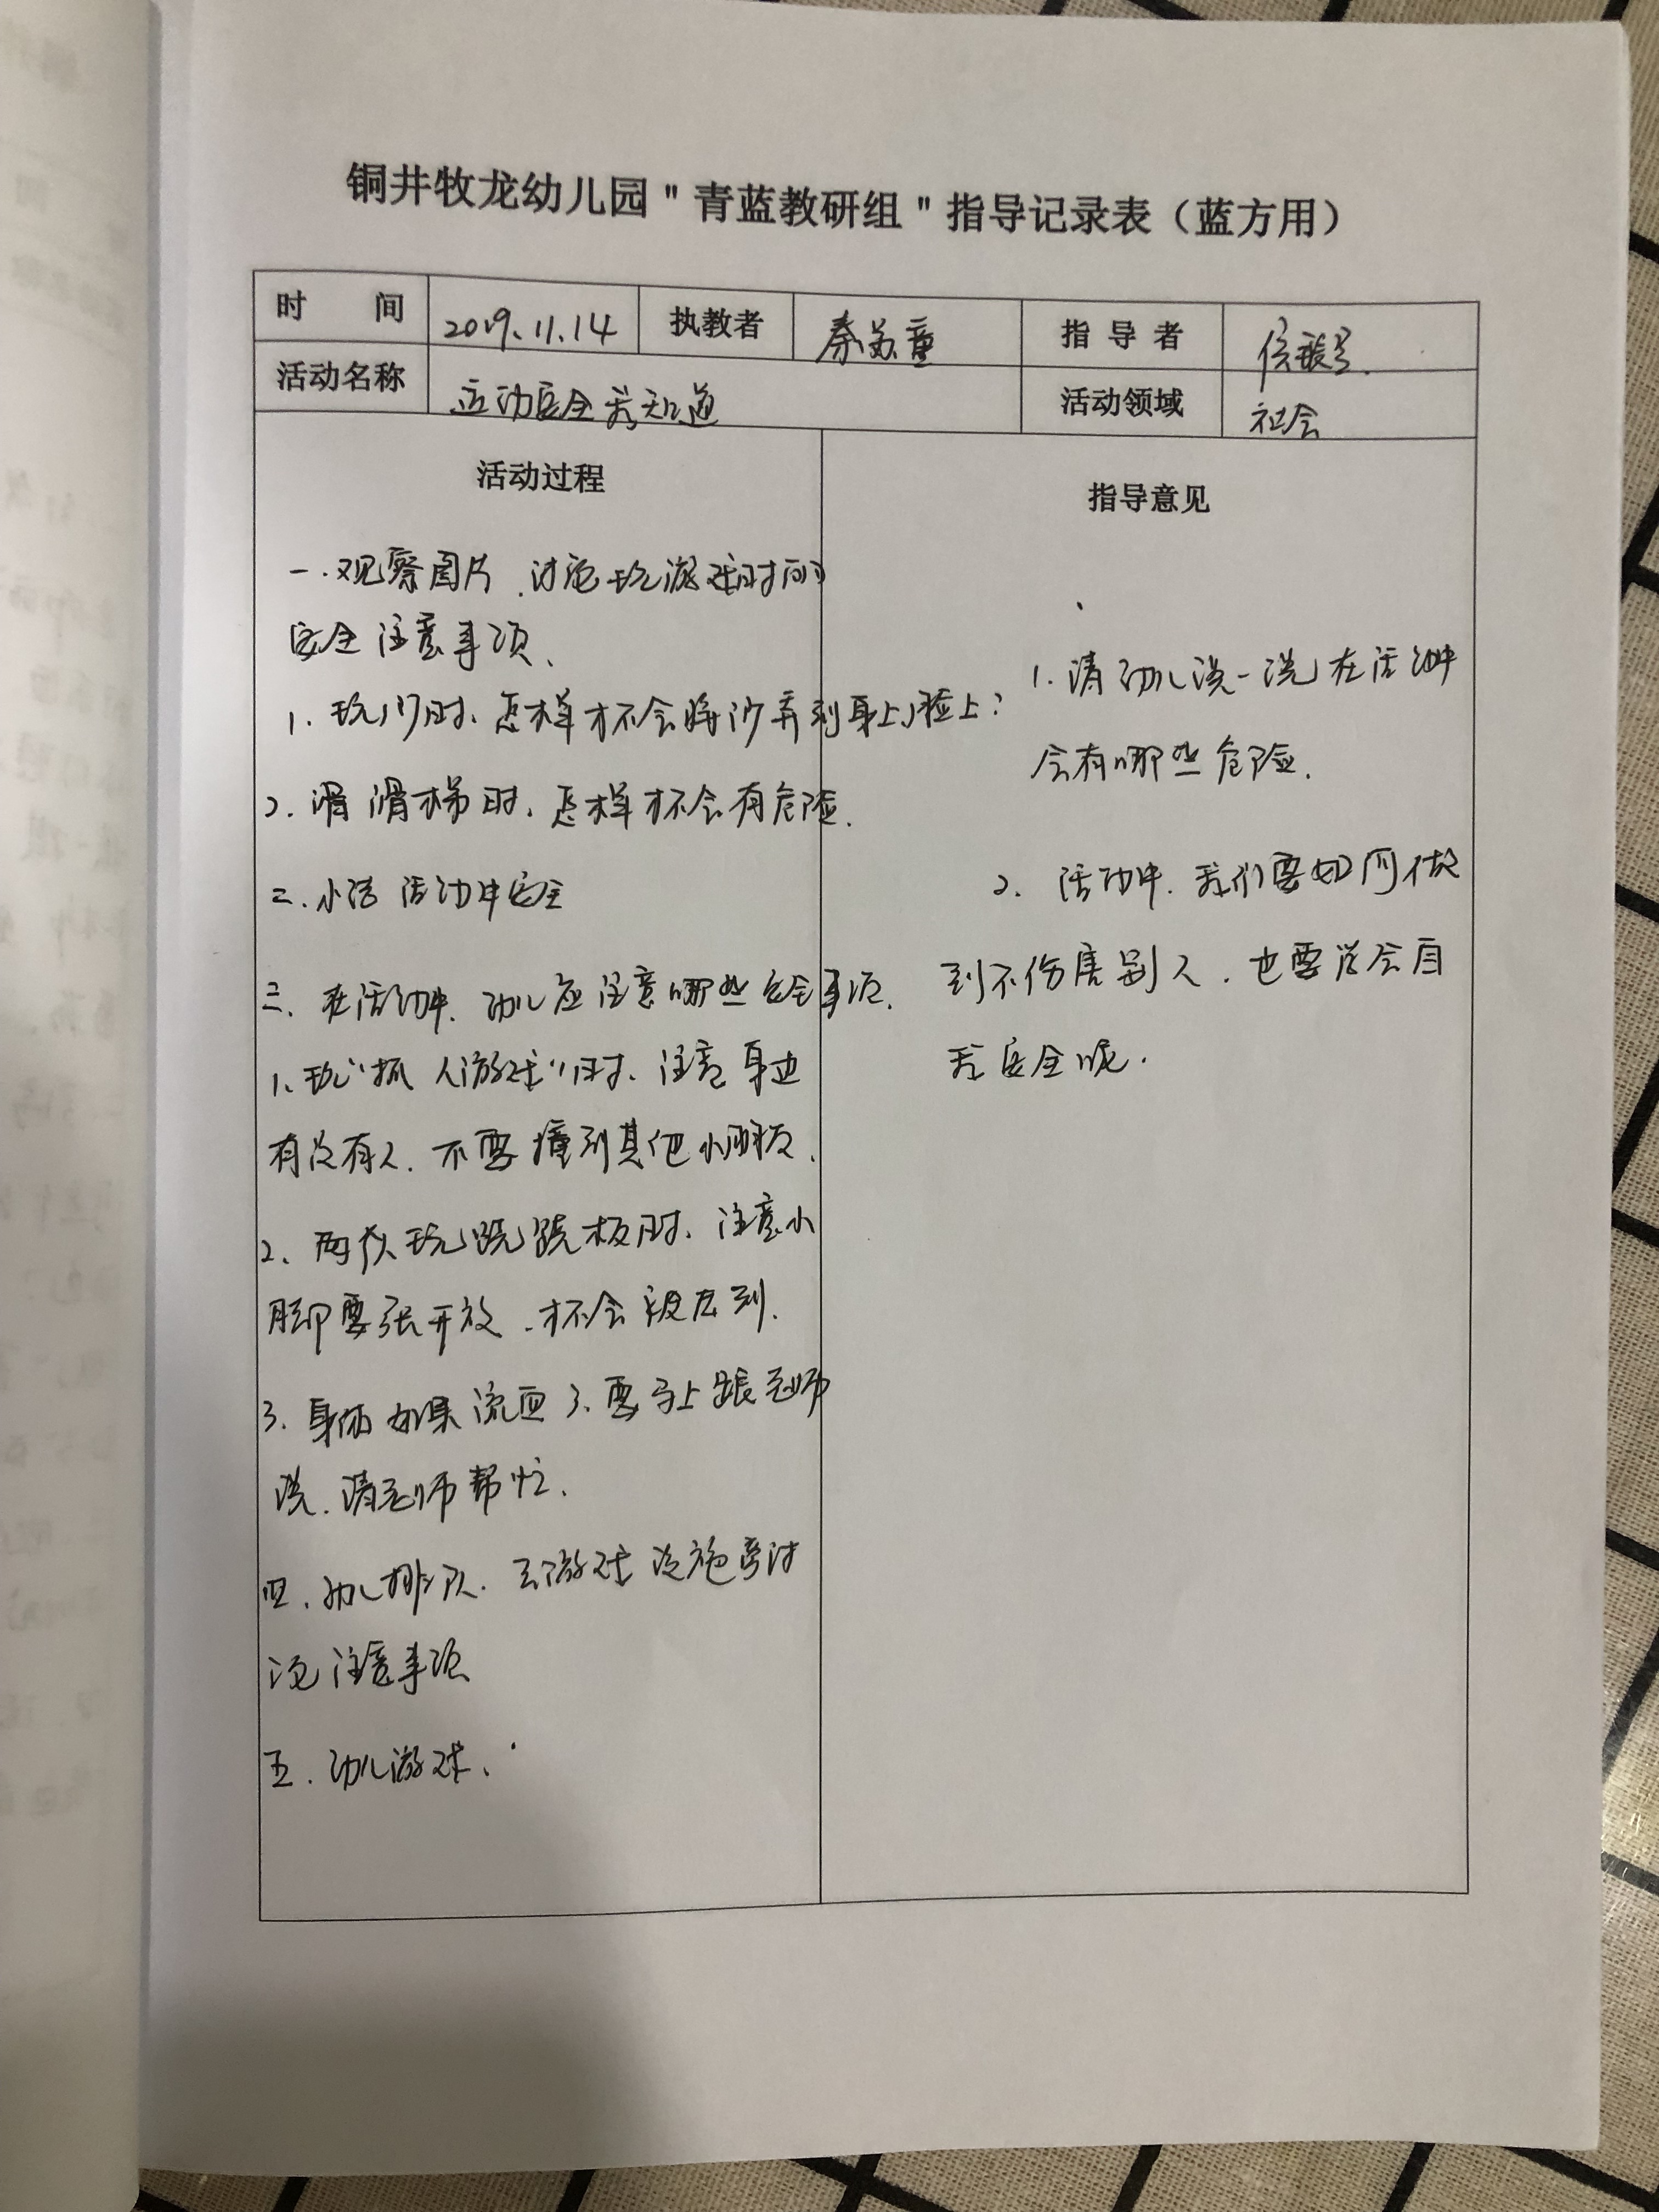 铜井牧龙幼儿园"青蓝教研组"指导记录表（蓝方用）
时 间 2019.11.14 执教者 秦苏童 指导者
活动名称 运动安全我知道 活动领域 社会
活动过程
一.观察图片.讨论玩游戏时的
安全注意事项、
1.玩沙时、怎样才不会将沙弄到身上脸上？
2.滑滑梯时、怎样才不会有危险.
二.小结活动中安全
三.在活动中、幼儿应注意哪些安全事项.
1、玩"抓人游戏"时、注意身边
有没有人.不要撞到其他小朋友.
2、两队玩跷跷板时、注意小
脚要张开放.才不会被压到.
3.身体如果流血了、要马上跟老师
说.请老师帮忙.
四.幼儿排队.去游戏设施旁讨
论注意事项
五.幼儿游戏、
指导意见
1.请幼儿说一说在活动中
会有哪些危险.
2.活动中.我们要如何做
到不伤害别人.也要学会自
我安全呢.